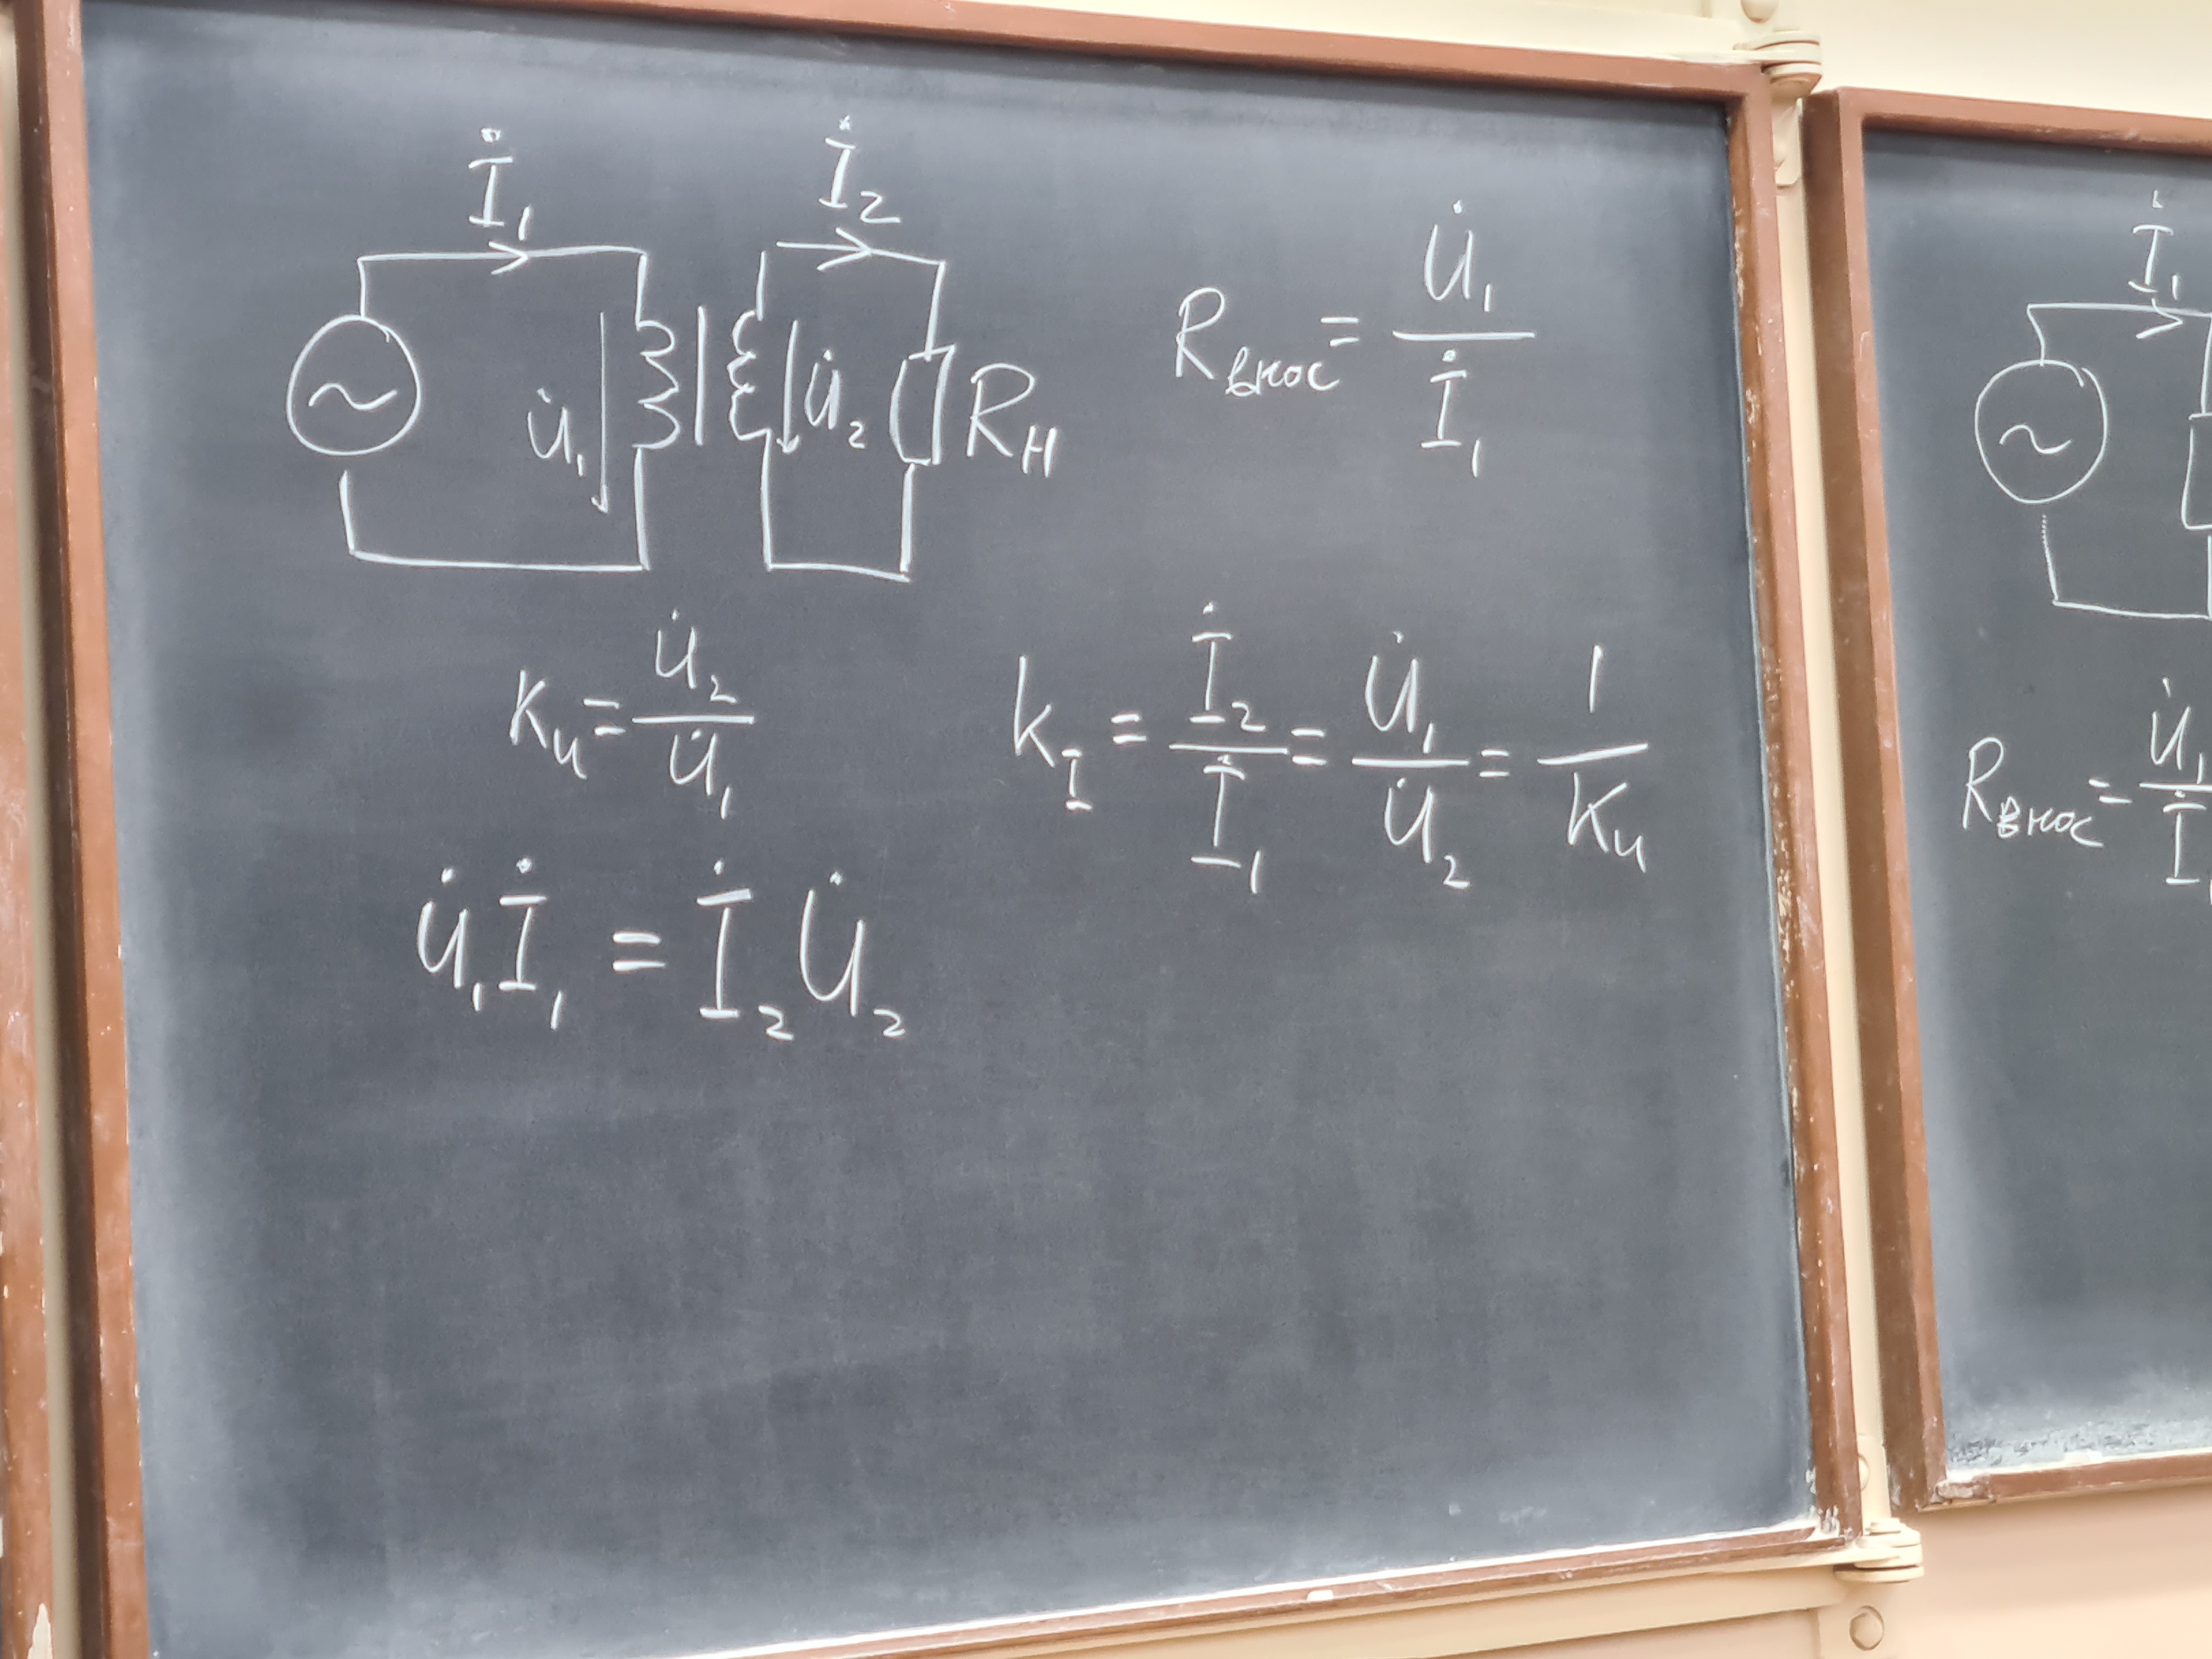 İ₁
İ₂
U̇₁
U̇₂
Rн
Rвнос = U̇₁ / İ₁
Ku = U̇₂ / U̇₁
kI = İ₂ / İ₁ = U̇₁ / U̇₂ = 1 / Ku
U̇₁İ₁ = İ₂U̇₂
İ₁
Rвнос = U̇₁ / İ₁